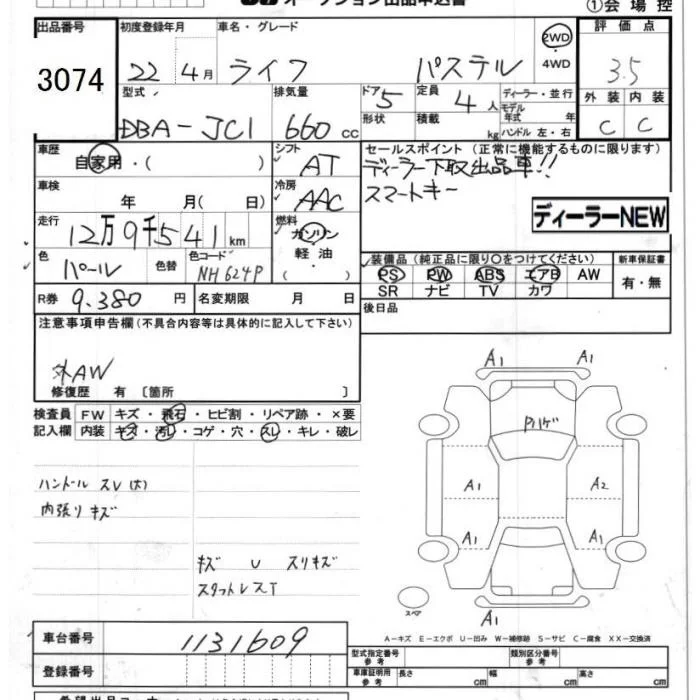 オークション出品申込書
①会場控
出品番号 初度登録年月 車名・グレード 評価点
3074 22 4月 ライフ パステル 2WD ・4WD 3.5
型式 排気量 ドア 5 定員 4人 ディーラー・並行 外装 内装
DBA-JC1 660cc 形状 積載 kg モデル年式 年式 ハンドル 左・右 C C
車歴 自家用・( ) シフト AT
セールスポイント(正常に機能するものに限ります)
ディーラー下取出品車!!
スマートキー
車検 年 月( 日) 冷房 AAC
ディーラーNEW
走行 12万9千541km 燃料 ガソリン 軽油 ・( )
色 パール 色替 色コード NH624P
装備品(純正品に限り○をつけてください) 新車保証書
PS PW ABS エアB AW 有・無
SR ナビ TV カワ
R券 9.380円 名変期限 月 日 後日品
注意事項申告欄(不具合内容等は具体的に記入して下さい)
外AW
修復歴 有〔箇所 〕
検査員記入欄 FW キズ・飛石・ヒビ割・リペア跡・×要
内装 キズ・汚レ・コゲ・穴・スレ・キレ・破レ
ハンドル スレ(大)
内張りキズ
キズ U スリキズ
スタットレスT
A1 A1
Pハゲ
A1 A2
A1 A1
スペア
A1
A−キズ E−エクボ U−凹み W−補修跡 S−サビ C−腐食 XX−交換済
車台番号 1131609
型式指定番号 参考 類別区分番号 参考
登録番号 車庫証明用 参考 長さ cm 幅 cm 高さ cm